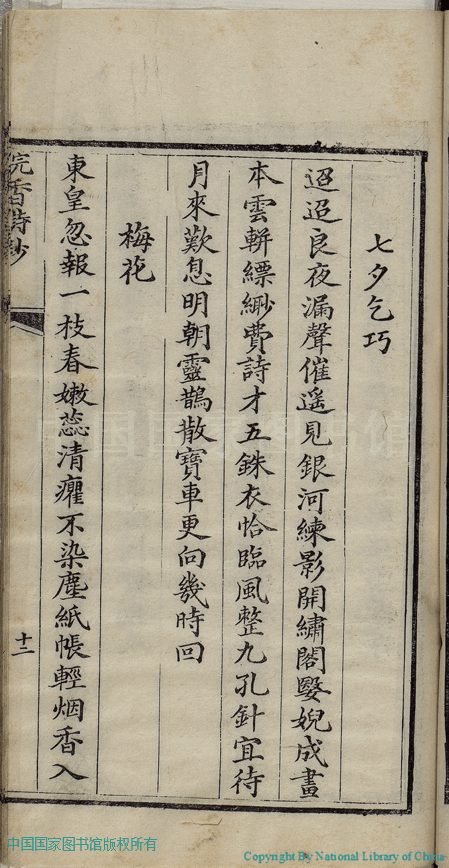 七夕乞巧
迢迢良夜漏聲催遥見銀河練影開繡閣嫛婗成畫
本雲軿縹緲費詩才五銖衣恰臨風整九孔針宜待
月來歎息明朝靈鵲散寶車更向幾時回
梅花
東皇忽報一枝春嫩蕊清癯不染塵紙帳輕烟香入
香詩鈔
十二
中国国家图书馆版权所有
Copyright By National Library of China